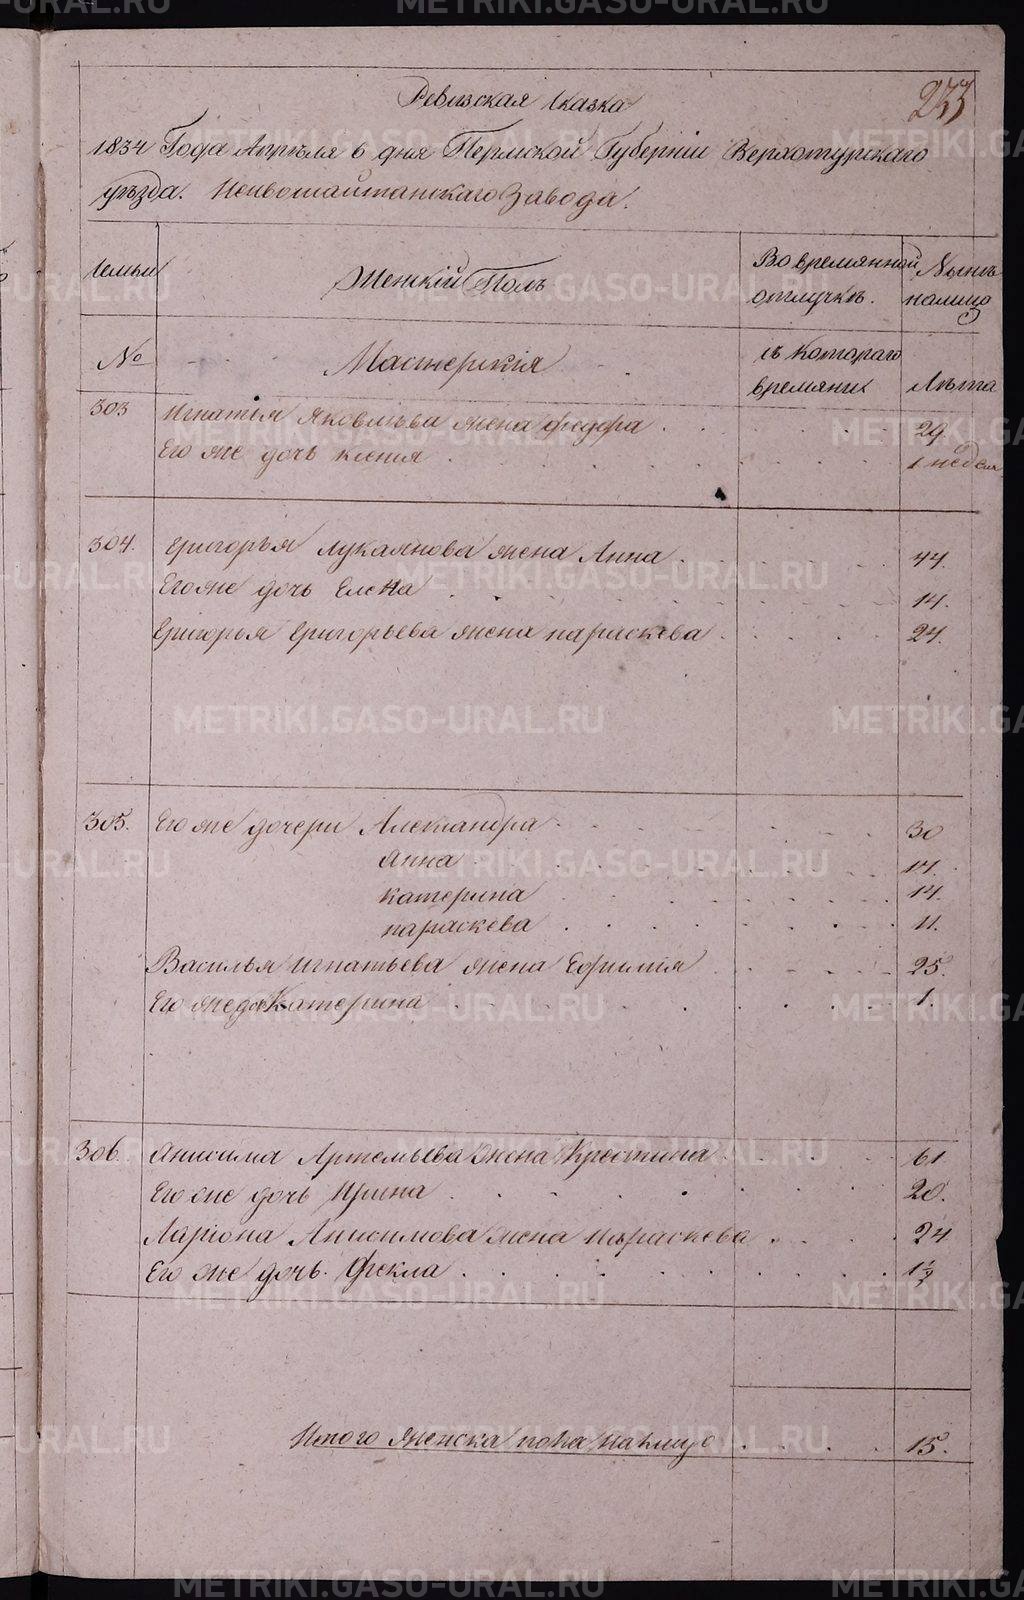 233
Ревизская Сказка
1834 Года Апреля 6 дня Пермской Губернiи Верхотурскаго
уѣзда. Невьошайтанскаго Завода.
Семьи Женскiй Полъ Во времянной отлучкѣ. Нынѣ налицо
№ Мастерскiя съ котораго времяни Лѣта
303 Игнатья Яковлева жена федора 29
Его же дочь ксенiя 1 недели
304. Григорья лукоянова жена Анна 44.
Его же дочь Елена 14.
Григорья Григорьева жена параскева 24.
305. Его же дочери Александра 30
Анна 17.
катерина 14.
параскева 11.
Василья игнатьева жена Ефимiя 25.
Его же дочь Катерина 1.
306. Анисима Артемьева жена Кристина 61
Его же дочь Ирина 20.
Ларiона Анисимова жена параскева 24
Его же дочь. Фекла
Итого женска пола налицо 15.
METRIKI.GASO-URAL.RU